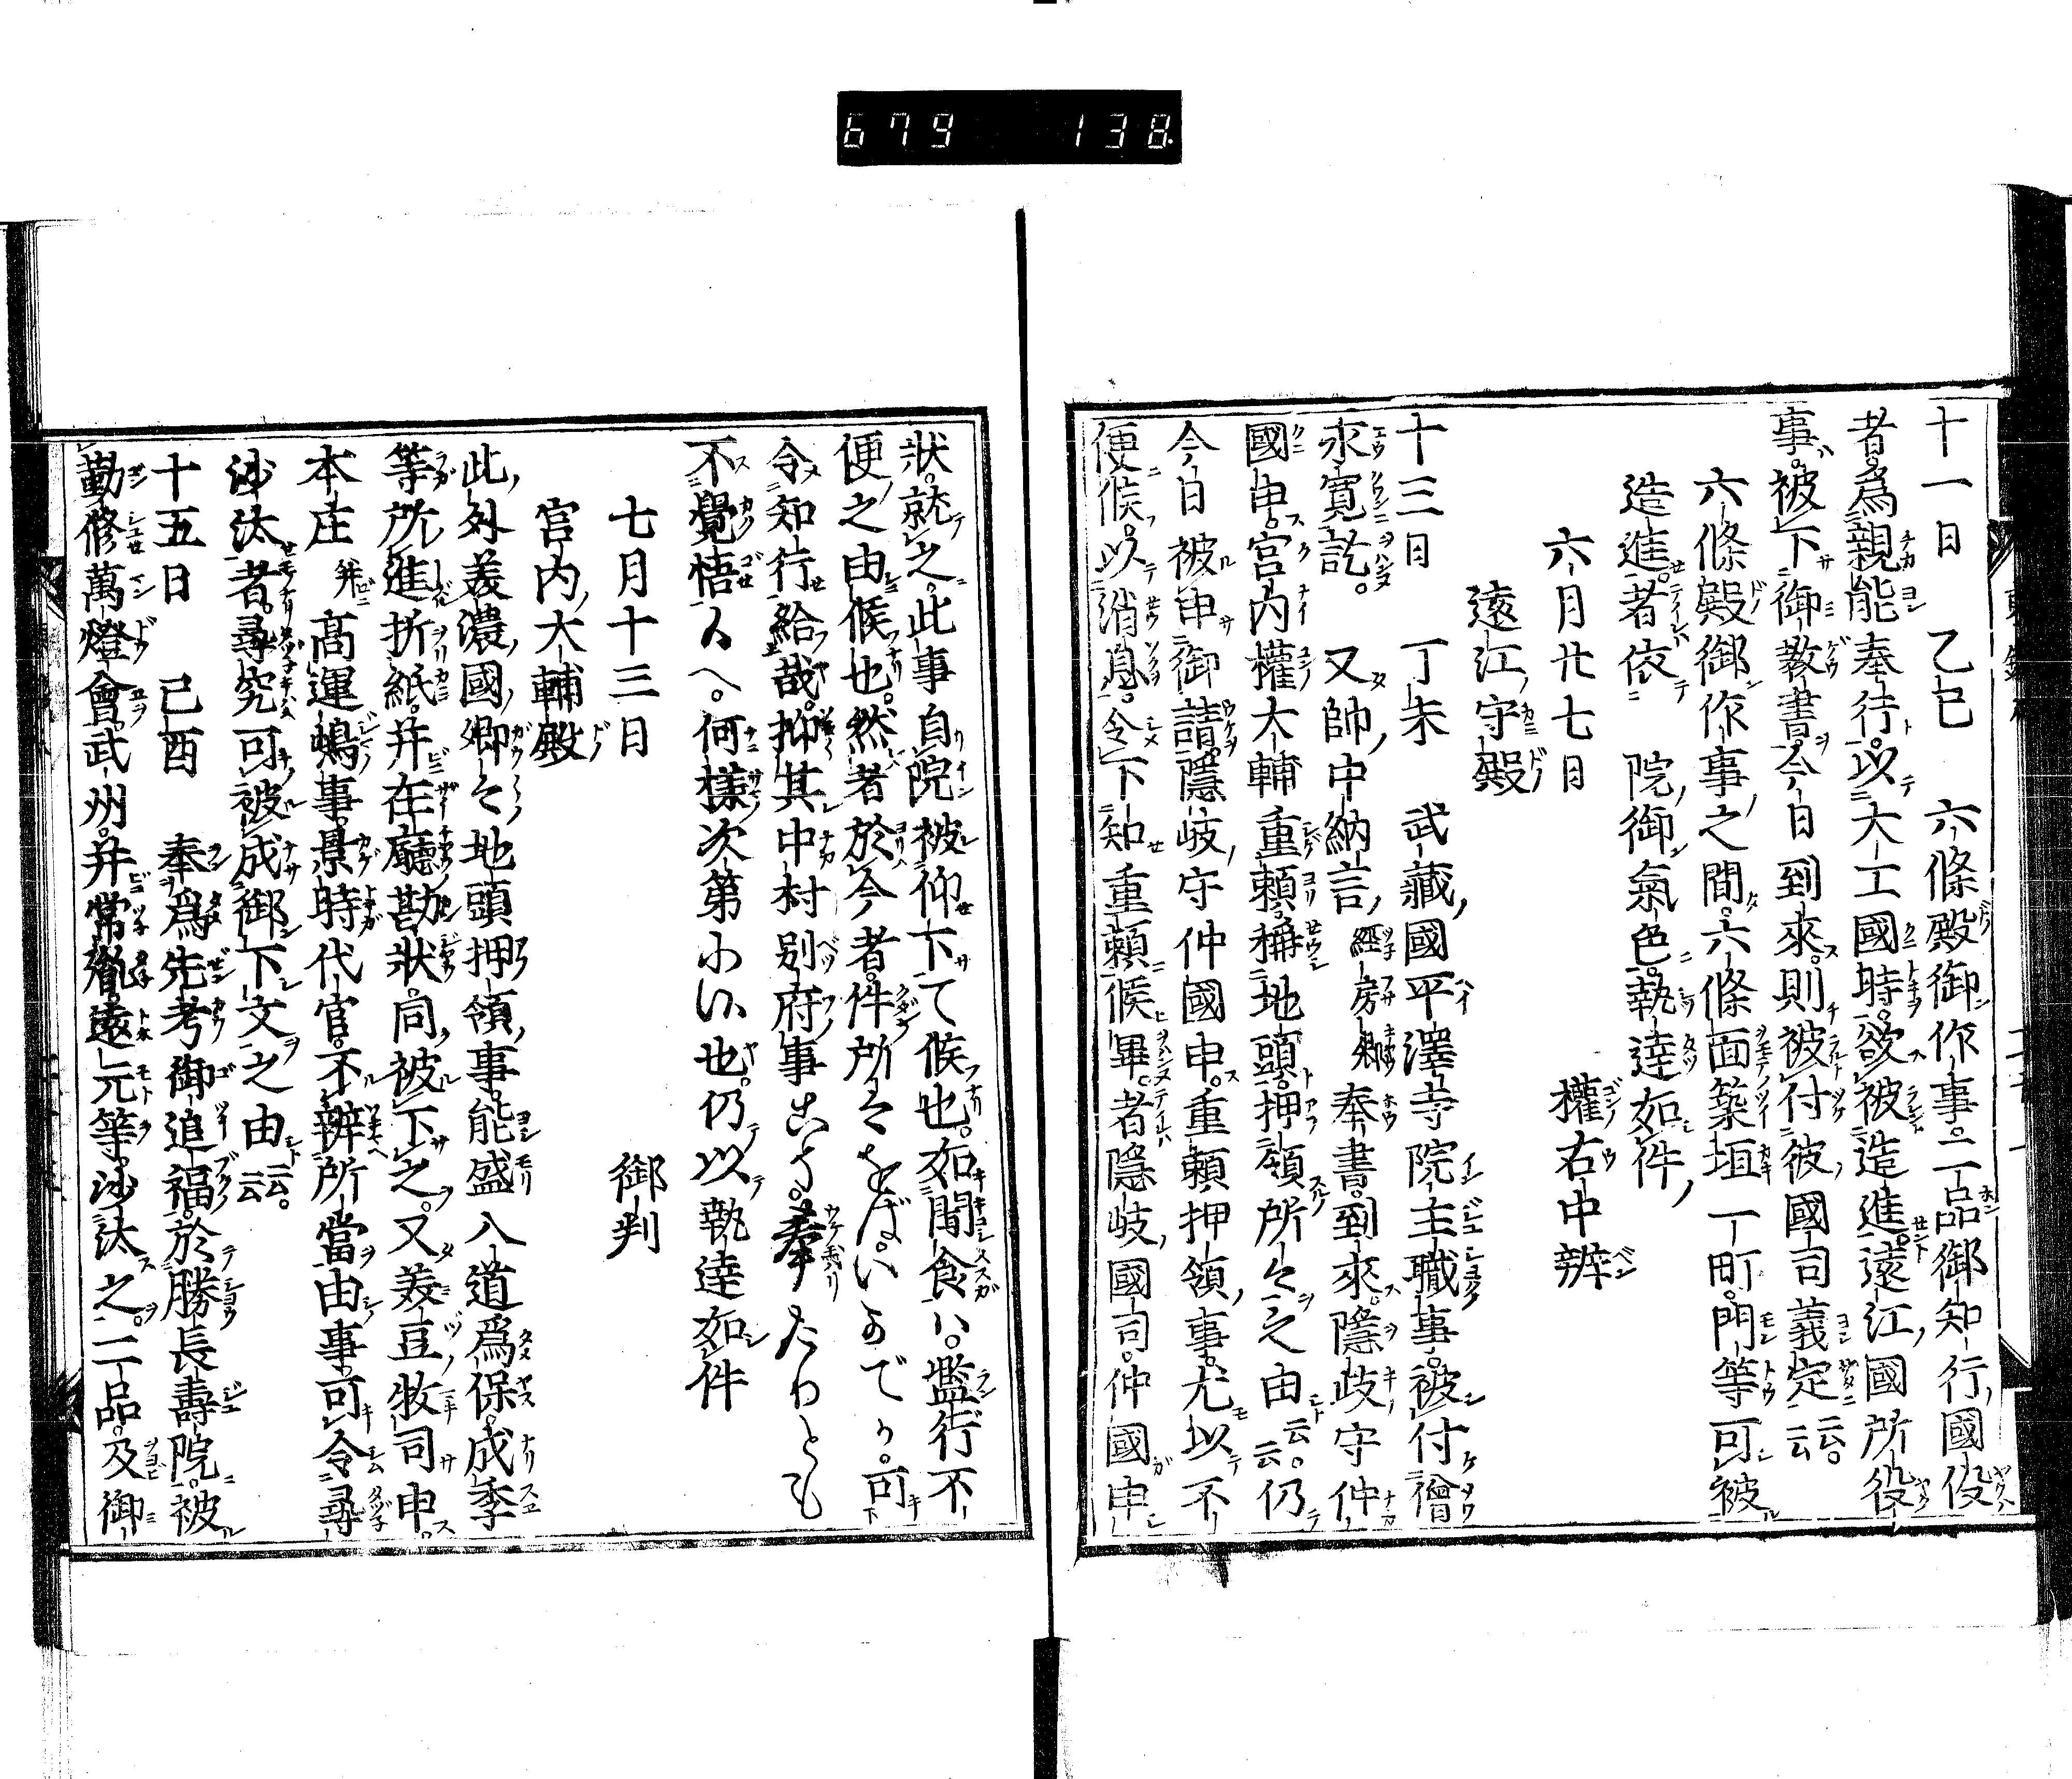 679 138
十一日 乙巳 六條殿御作事。二品御知行國役
者。爲親能奉行。以大工國時。欲被造進。遠江國所役
事。被下御教書。今日到來。則被付彼國司義定云云。
六條殿御作事之間。六條面築垣一町。門等可被
造進者。依 院御氣色。執達如件
六月廿七日 權右中辨
遠江守殿
十三日 丁未 武藏國平澤寺院主職事。被付僧
永寛訖。 又帥中納言 經房卿 奉書到來。隱岐守仲
國申。宮内權大輔重頼。稱地頭。押領所々之由云云。仍
今日被申御請。隱岐守仲國申。重頼押領事。尤以不
便候。以消息。令下知重頼候畢。者隱岐國司。仲國申
狀。就之。此事自院被仰下て候也。如聞食ハ。濫行不
便之由候也。然者於今者。件所々をば。いかでか。可
令知行給哉。抑其中村別府事こそ。奉たりとも
不覺悟候へ。何樣次第にか候也。仍以執達如件
七月十三日 御判
宮内大輔殿
此外美濃國卿々地頭押領事。能盛入道爲保。成季
等所進折紙。并在廳勘狀。同被下之。又美豆牧司申。
本庄 并 高運嶋事。景時代官。不辨所當由事。可令尋
沙汰者。尋究可被成御下文之由云云。
十五日 己酉 奉爲先考御追福。於勝長壽院。被
勤修萬燈會。武州。并常胤。遠元等。沙汰之。二品。及御